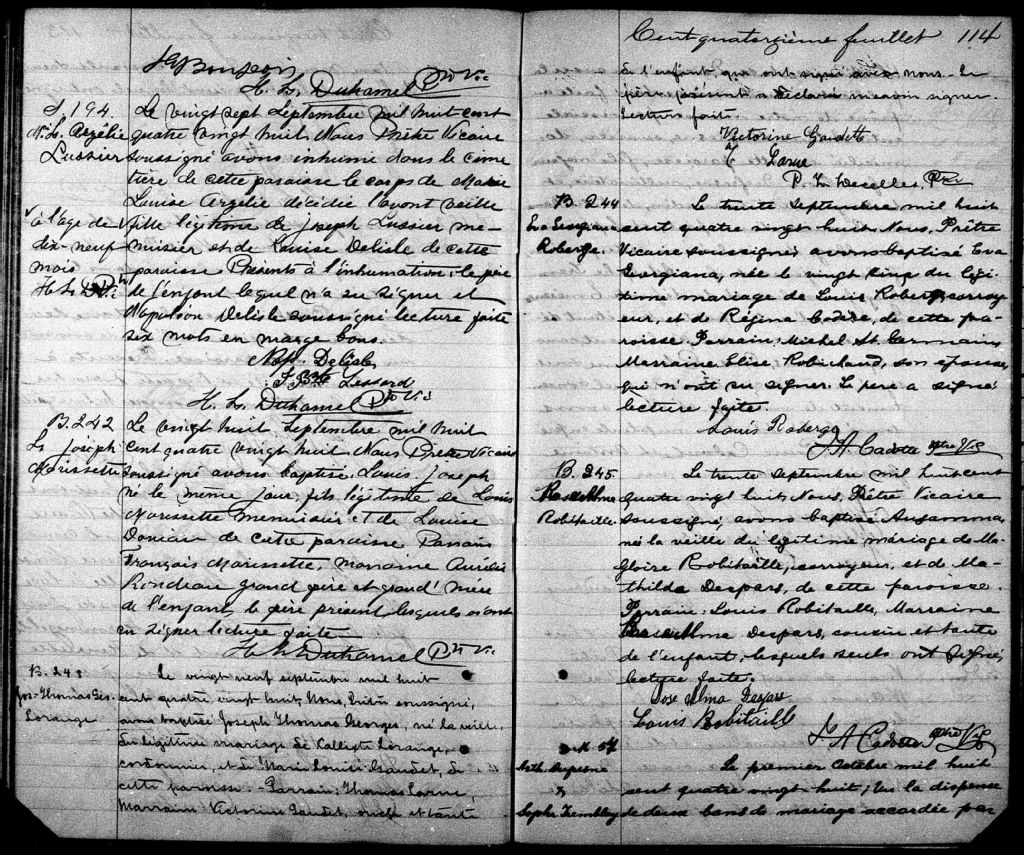 H. L. Duhamel Ptre Vic
S. 194
M. L. Azzélie
Lussier
Le vingt sept Septembre mil huit cent
quatre vingt huit Nous Prêtre Vicaire
soussigné avons inhumé dans le cime
tière de cette paroisse le corps de Marie
Louise Azzélie décédée l'avant veille
à l'age de
dix-neuf
mois
fille légitime de Joseph Lussier me-
nuisier et de Louise Delisle de cette
paroisse Présents à l'inhumation, le père
de l'enfant lequel n'a su signer et
Napoléon Delisle soussigné lecture faite
six mots en marge bons.
Nap. Delisle
J. Bte Lessard
H. L. Duhamel Ptre Vic
B. 242
Ls Joseph
Morissette
Le vingt huit Septembre mil huit
cent quatre vingt huit Nous Prêtre Vicaire
soussigné avons baptisé Louis Joseph
né le même jour, fils légitime de Louis
Morissette menuisier et de Louise
de cette paroisse Parrain
François Morissette, marraine Aurélie
Rondeau grand père et grand' mère
de l'enfant, le père présent lesquels n'ont
su signer lecture faite
H. L. Duhamel Ptre Vic
B. 243
Jos-Thomas Geo-
Lorange
Le vingt neuf septembre mil huit
cent quatre vingt huit, Nous, Prêtre soussigné,
avons baptisé Joseph Thomas Georges, né la veille
du légitime mariage de Calixte Lorange,
cordonnier, et de Marie Louise Gaudet, de
cette paroisse. - Parrain: Thomas Larue
Marraine: Victorine Gaudet, oncle et tante
Cent quatorzième feuillet 114
de l'enfant, qui ont signé avec nous. Le
père présent a déclaré ne savoir signer.
Lecture faite.
Victorine Gaudette
T. Larue
P. Z. Decelles, Ptre
B. 244
Eva Georgiana
Roberge.
Le trente septembre mil huit
cent quatre vingt huit, Nous, Prêtre
Vicaire soussigné, avons baptisé Eva
Georgiana, née le vingt cinq du légi-
time mariage de Louis Roberge, corroy-
eur, et de Régina Codère, de cette pa-
roisse. Parrain: Michel St. Germain,
Marraine Elise Robichaud, son épouse,
qui n'ont su signer. Le père a signé
lecture faite.
Louis Roberge
J. A. Cadotte ptre Vic
B. 245
Robitaille
Le trente septembre mil huit cent
quatre vingt huit, Nous, Prêtre Vicaire
soussigné, avons baptisé
né la veille du légitime mariage de Ma-
gloire Robitaille, corroyeur, et de Ma-
thilda Despars, de cette paroisse.
Parrain: Louis Robitaille, Marraine
Rose Alma Despars, cousin et tante
de l'enfant, lesquels seuls ont signé,
lecture faite.
Rose Alma Despars
Louis Robitaille
J. A. Cadotte ptre Vic
M. 57
Arth. Dufresne
&
Sophie Tremblay
Le premier Octobre mil huit
cent quatre vingt huit; Vu la dispense
de deux bans de mariage accordée par